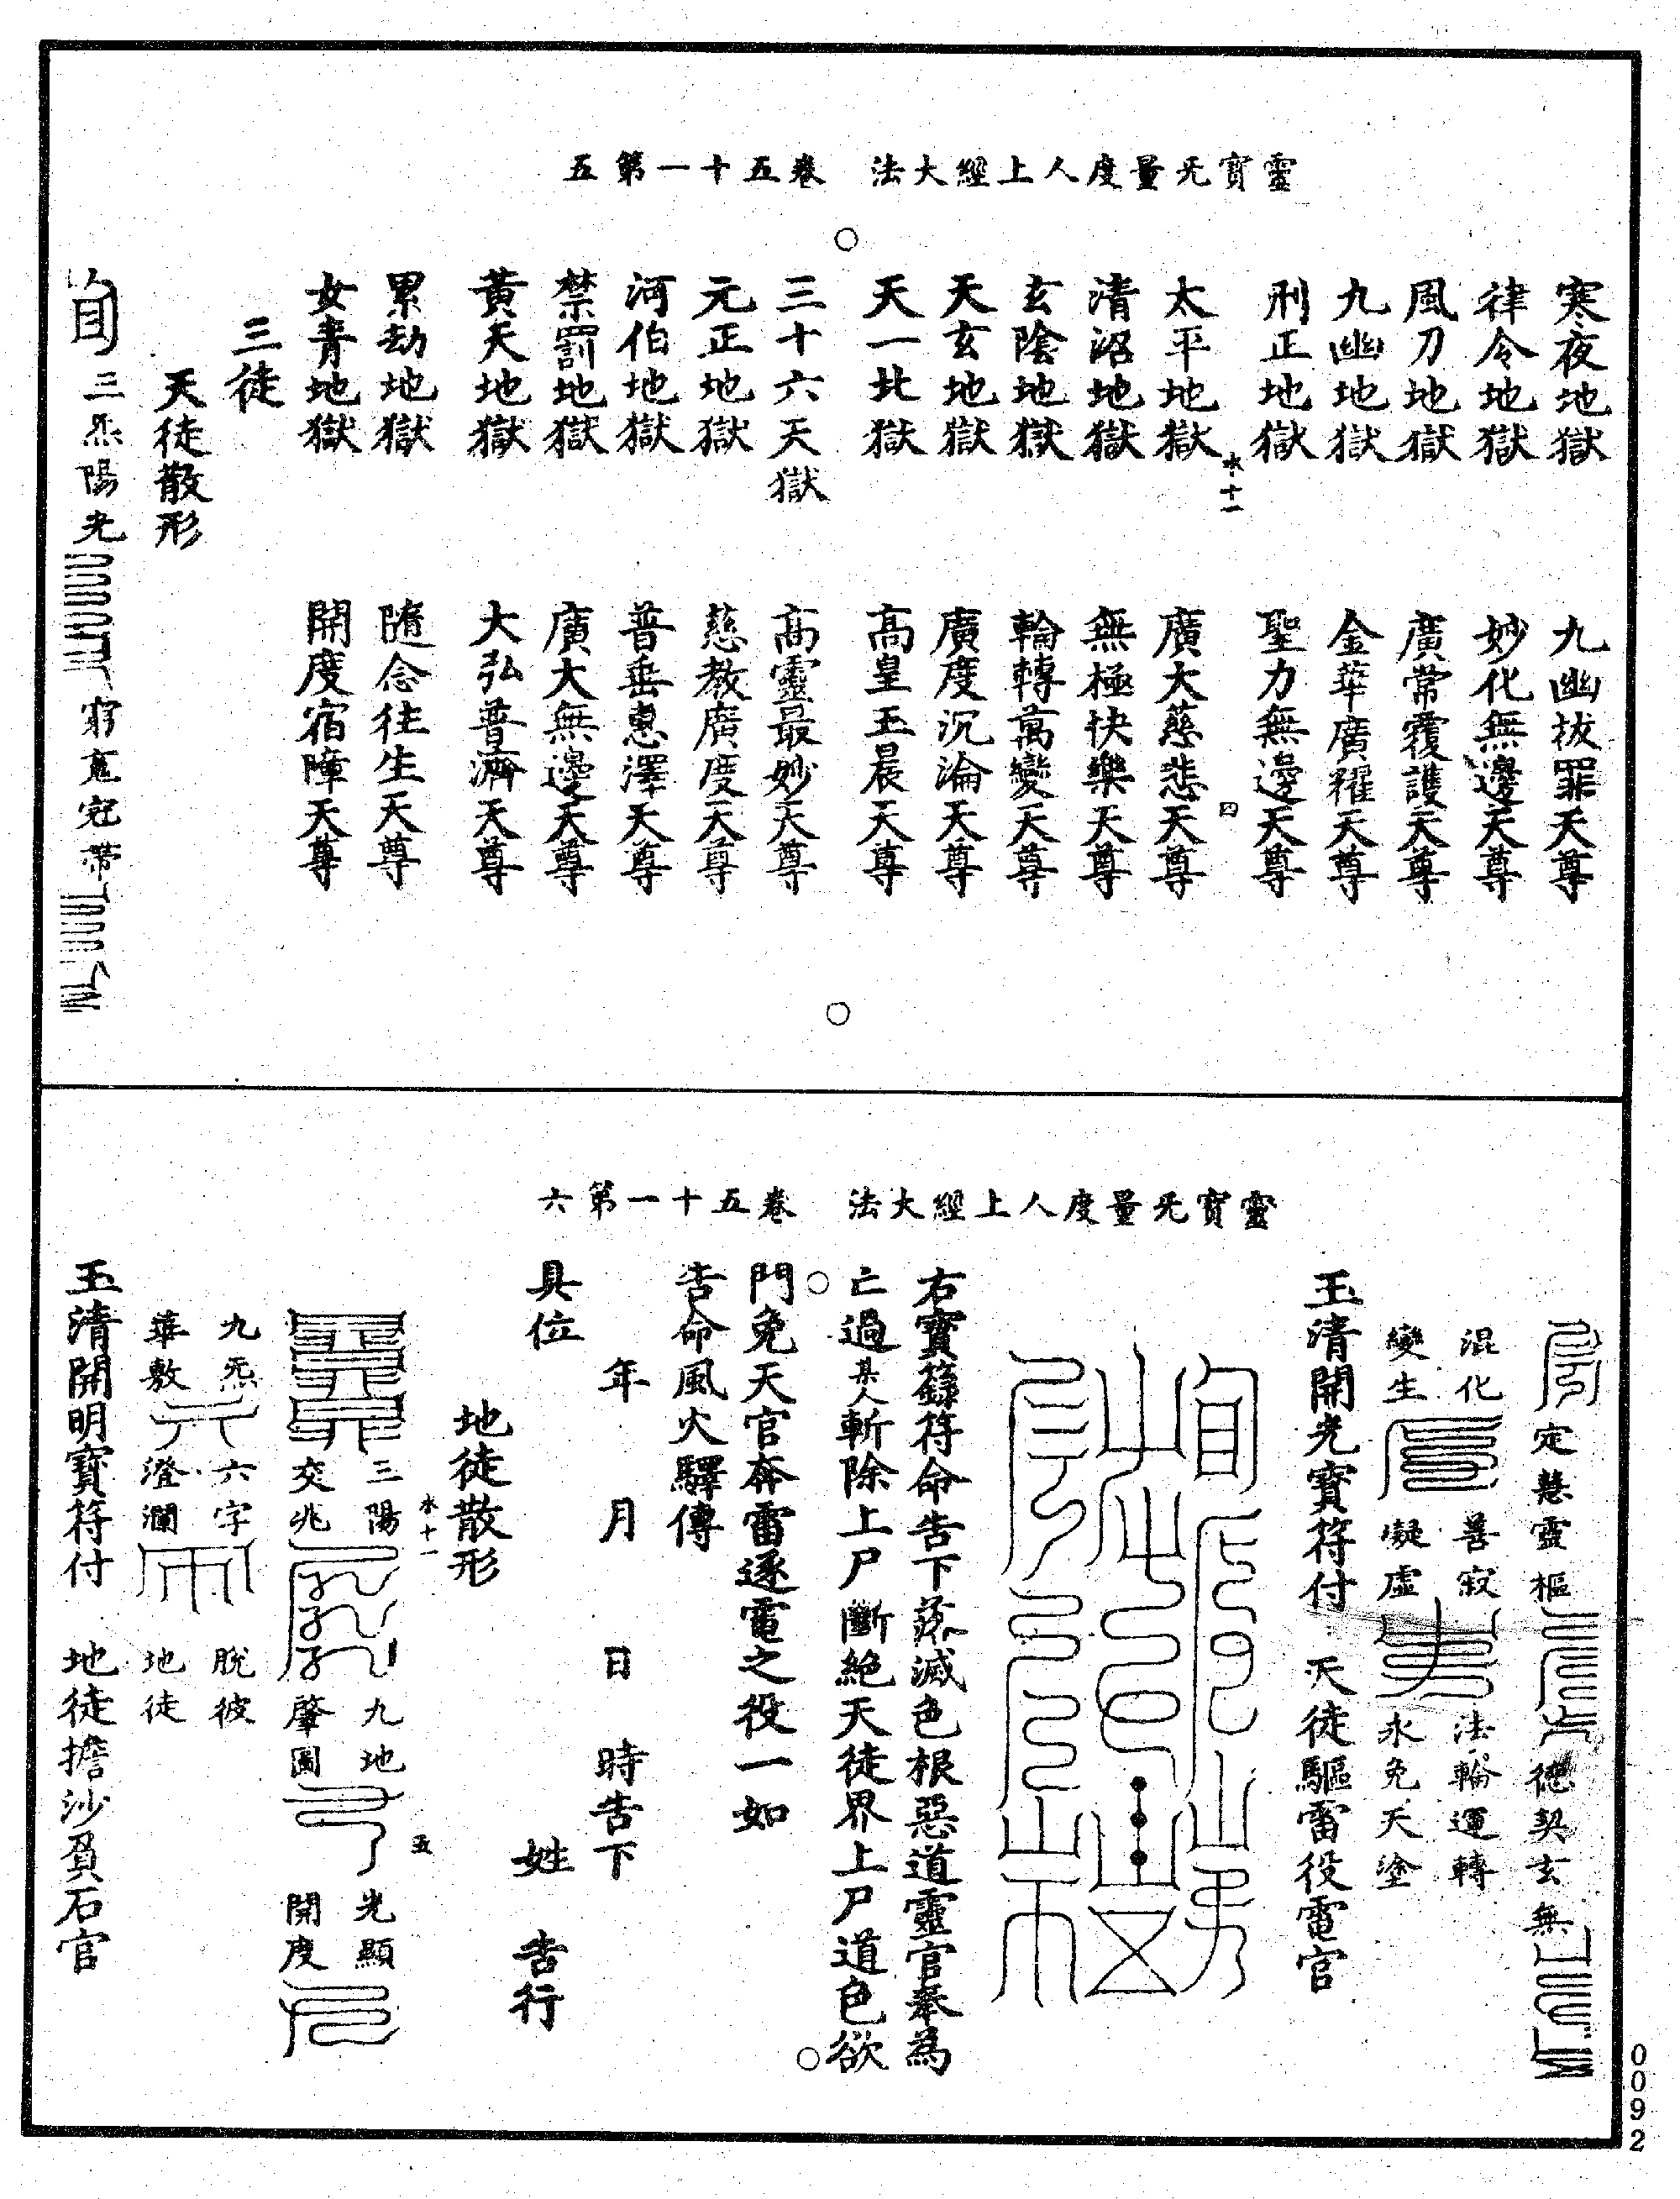 靈寶无量度人上經大法　卷五十一第五
寒夜地獄　九幽拔罪天尊
律令地獄　妙化無邊天尊
風刀地獄　廣常覆護天尊
九幽地獄　金華廣耀天尊
刑正地獄　聖力無邊天尊
水十一　四
太平地獄　廣大慈悲天尊
清沼地獄　無極快樂天尊
玄陰地獄　輪轉萬變天尊
天玄地獄　廣度沉淪天尊
天一北獄　高皇玉晨天尊
三十六天獄　高靈最妙天尊
元正地獄　慈教廣度天尊
河伯地獄　普垂惠澤天尊
禁罰地獄　廣大無邊天尊
黃天地獄　大弘普濟天尊
累劫地獄　隨念往生天尊
女青地獄　開度宿障天尊
三徒
天徒散形
三炁陽光　冠帶
靈寶无量度人上經大法　卷五十一第六
定慧靈樞　德契玄無
混化　善寂　法輪運轉
變生　凝虛　永免天塗
玉清開光寶符付　天徒驅雷役電官
右寶籙符命告下蕩滅色根惡道靈官奉為
亡過某人斬除上尸斷絕天徒界上尸道色欲
門免天官奔雷逐電之役一如
告命風火驛傳
年　月　日　時告下
具位　姓　告行
地徒散形
水十一　五
三陽　九地　光顯
交兆　肇圖　開度
九炁　六字　脫彼
華敷　澄瀾　地徒
玉清開明寶符付　地徒擔沙負石官
0092